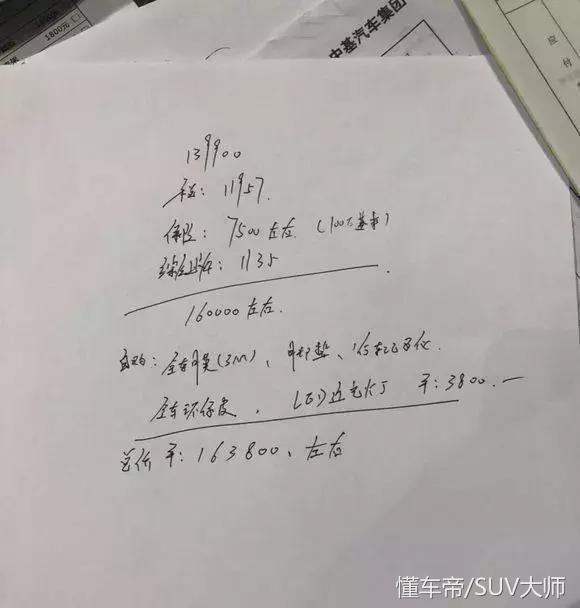 1800元
中基汽车集团
应付
139900
税: 11957.
保险: 7500左右 (100万基本)
上牌: 1135
160000左右.
全车膜(3M)、脚垫、行车记录仪.
全车环保皮, LED近光灯 平:3800.一
总价 平: 163800、左右
懂车帝/SUV大师